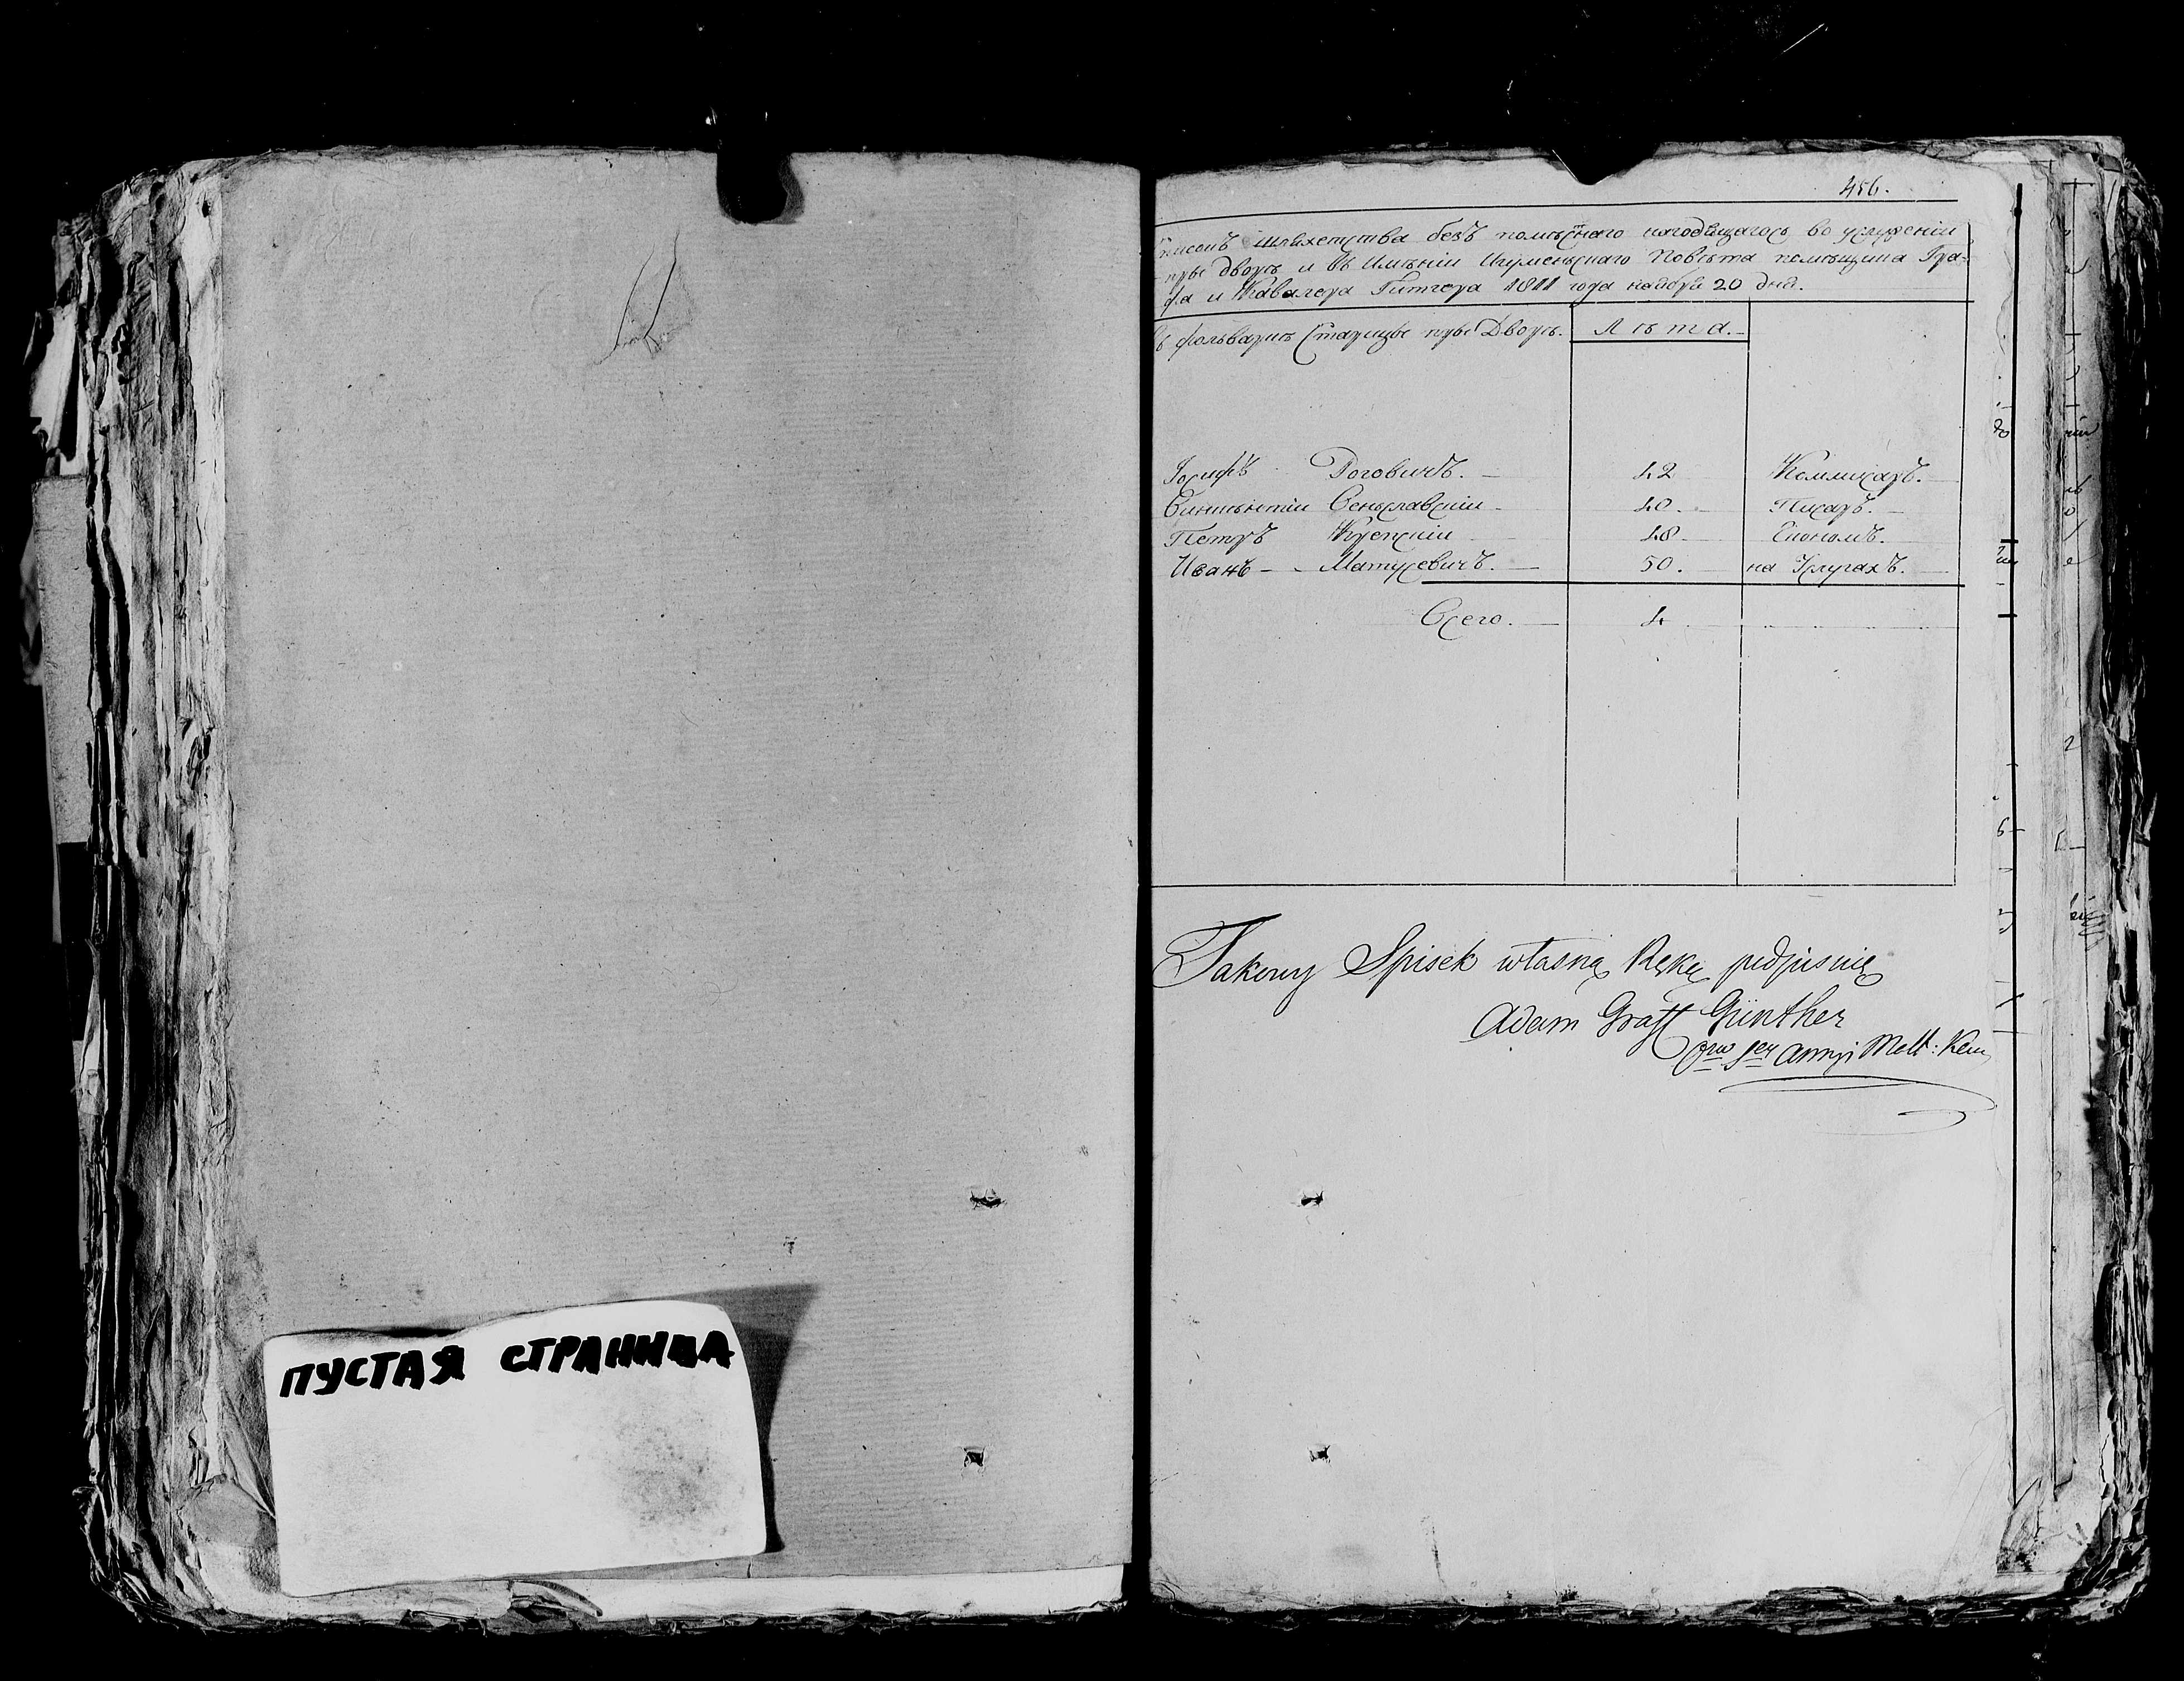 ПУСТАЯ СТРАНИЦА
456.
Списокъ Шляхетства безъ помѣснаго находящагось во услуженіи
при дворѣ и въ Имѣніи Игуменьскаго Повѣта помѣщика Гра-
фа и Кавалера Гинтера 1811 года ноября 20 дня.
въ фольваркѣ Старицѣ при Дворѣ. Лѣта.
Іосифъ Роговичъ. 42 Коммисаръ.
Винцентіи Сеньславскіи 40. Писаръ.
Петръ 48 Економъ.
Иванъ Матусевичъ. 50. на Услугахъ.
Всего. 4
Takowy Spisek własną Ręką podpisuię
Adam Graff Günther
Annyi Malt: Kaw